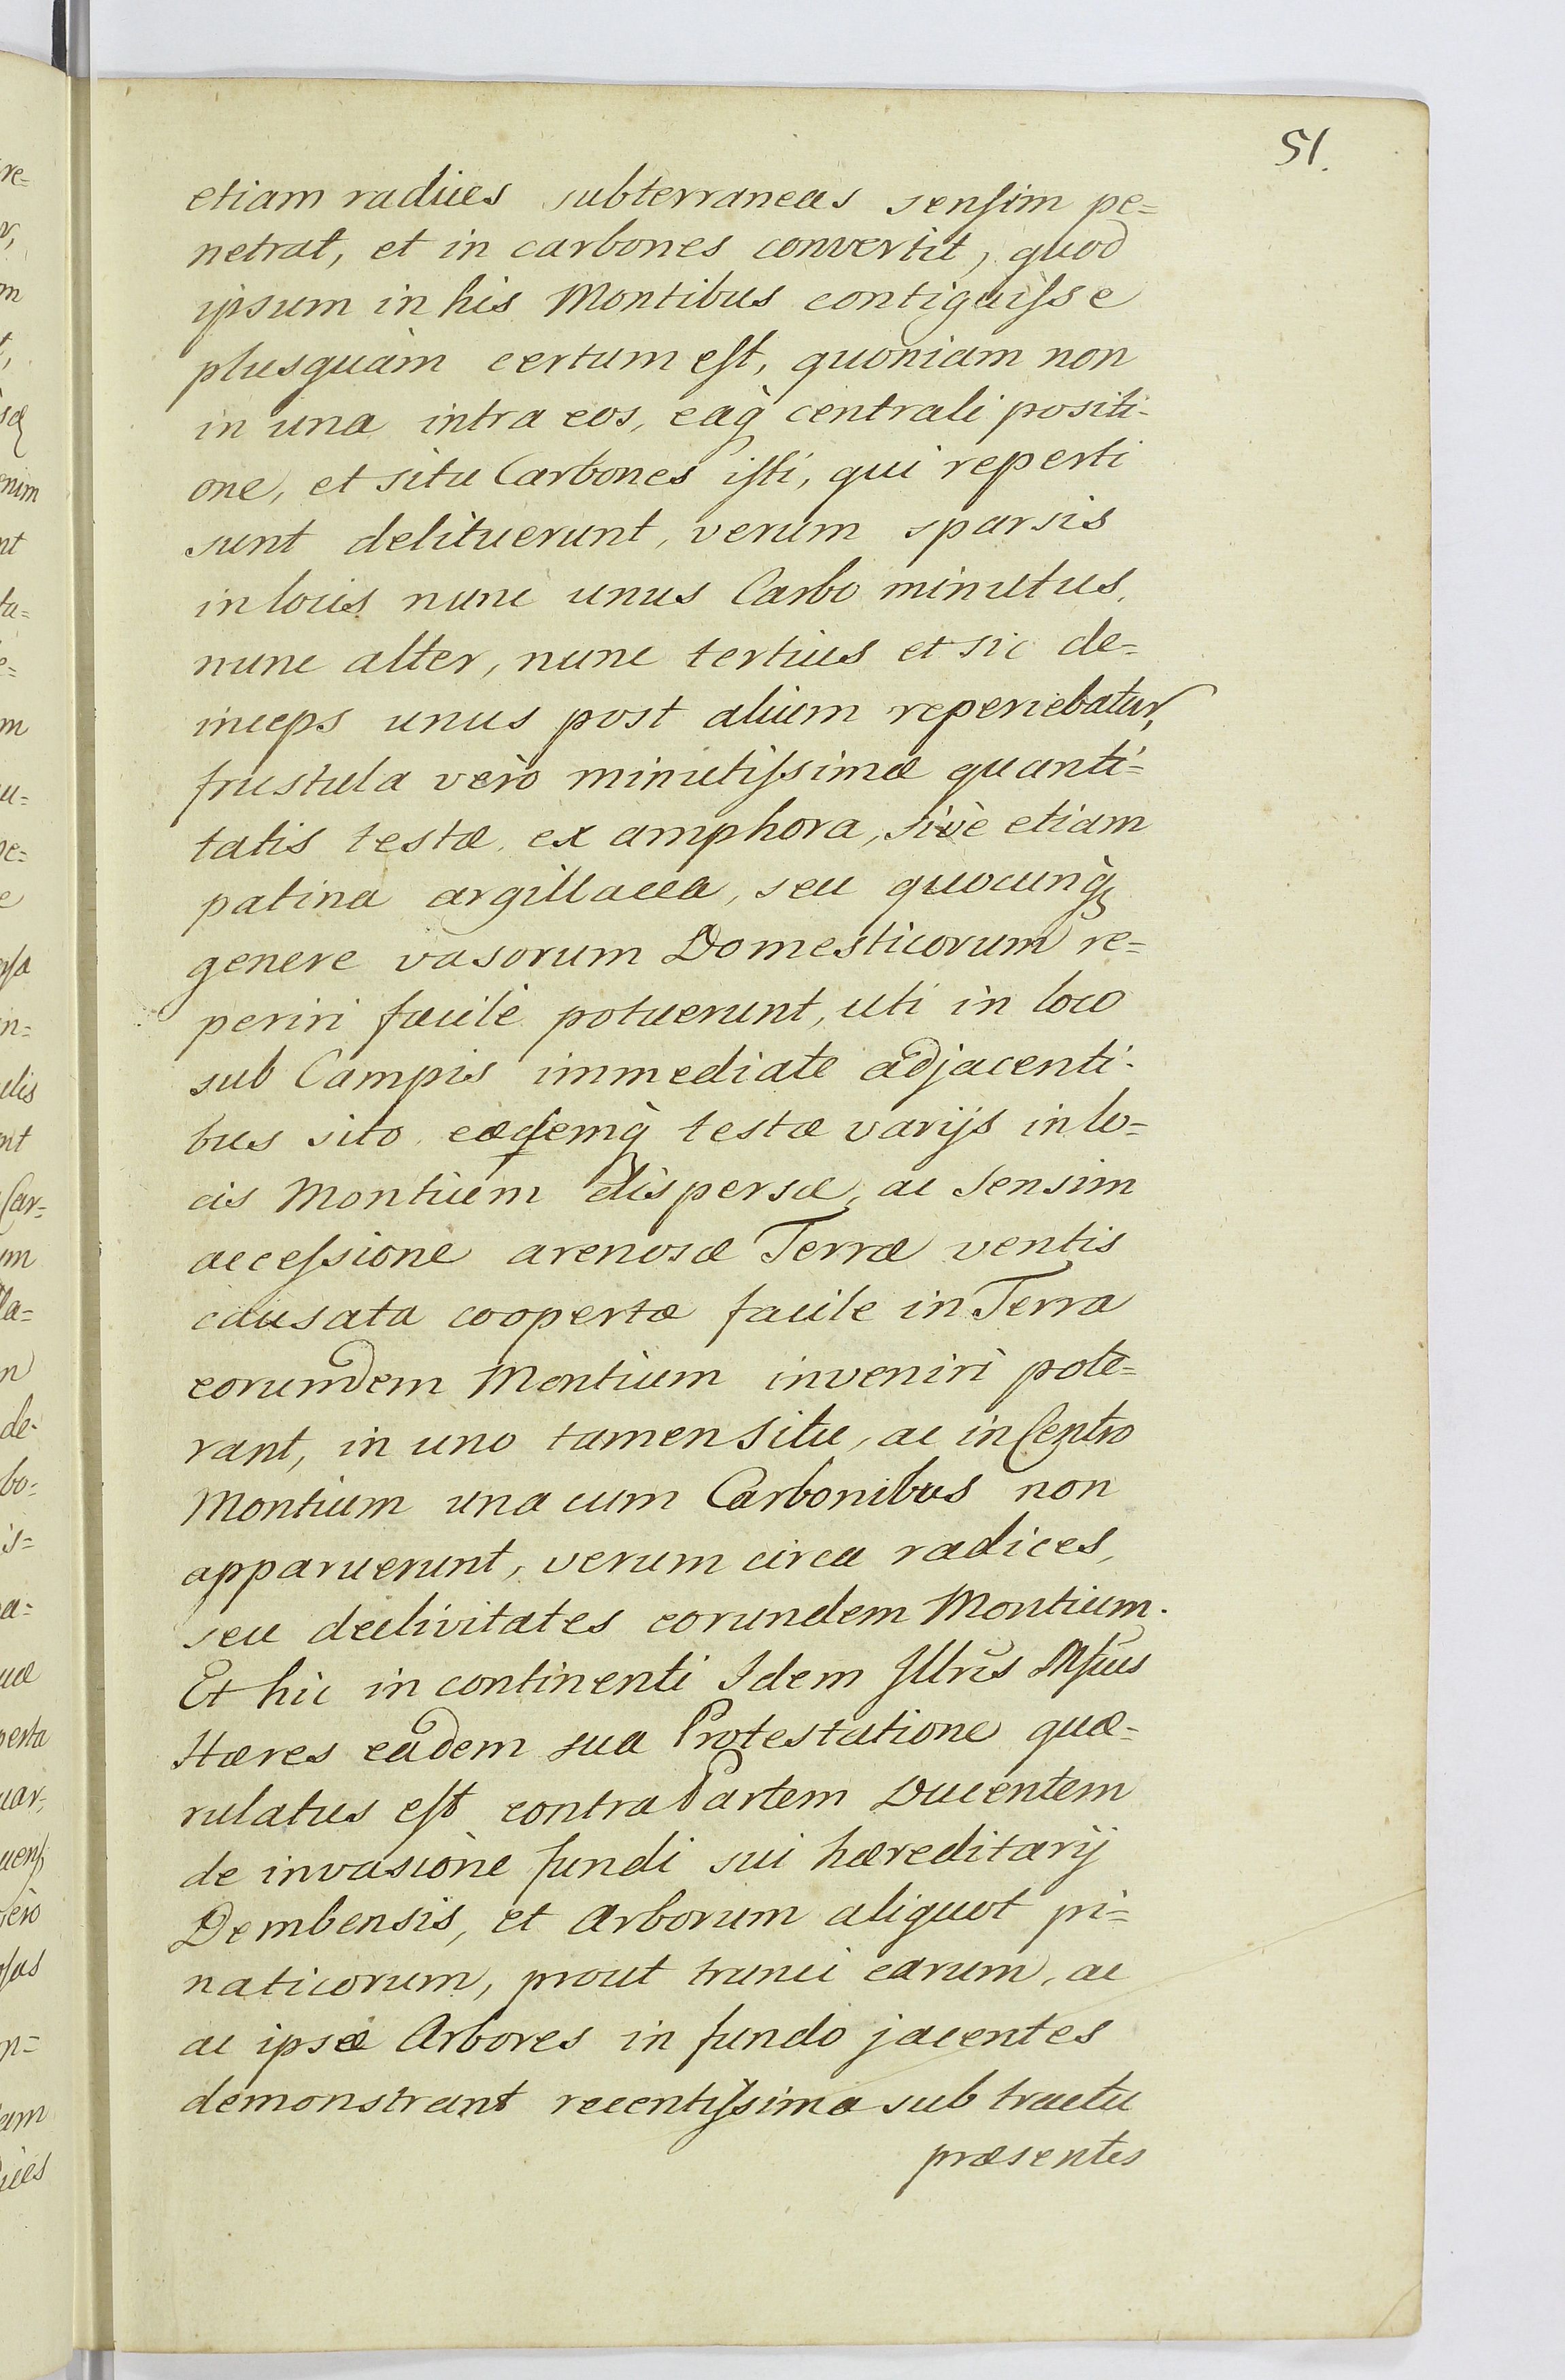 51.
etiam radices subterraneas sensim pe=
netrat, et in carbones convertit, quod
ipsum in his Montibus contiguisse
plusquàm certum est, quoniam non
in una intra eos, eaq̀ centrali positi-
one, et situ Carbones isti, qui reperti
sunt delituerunt, verum sparsis
in locis nunc unus Carbo minutus,
nunc alter, nunc tertius et sic de=
inceps unus post alium reperiebatur,
frustula verò minutissimæ quanti=
tatis testæ ex amphora, sivè etiam
patina argillacea, seu quocunq̀
genere vasorum Domesticorum re=
periri facilè potuerunt, uti in loco
sub Campis immediate adjacenti-
bus sito, eædemq̀ testæ varijs in lo=
cis Montium dispersæ, ac sensim
accessione arenosæ Terræ ventis
causata coopertæ facile in Terra
eorumdem Montium inveniri pote=
rant, in uno tamen situ, ac in Centro
Montium una cum Carbonibus non
apparuerunt, verum circa radices,
seu declivitates eorundem Montium.
Et hic in continenti Idem Illr̃is
Hæres eadem sua Protestatione quæ=
rulatus est contra Partem Ducentem
de invasione fundi sui hæreditarij
Dembensis, et Arborum aliquot pi=
naticorum, prout trunci earum, ac
ac ipsæ Arbores in fundo jacentes
demonstrant recentissima sub tractu
præsentis
re=
m
enim
nt
ta=
e=
m
u=
e
n=
nt
Car=
um
la=
n
de-
bo=
is=
a=
perta
n=